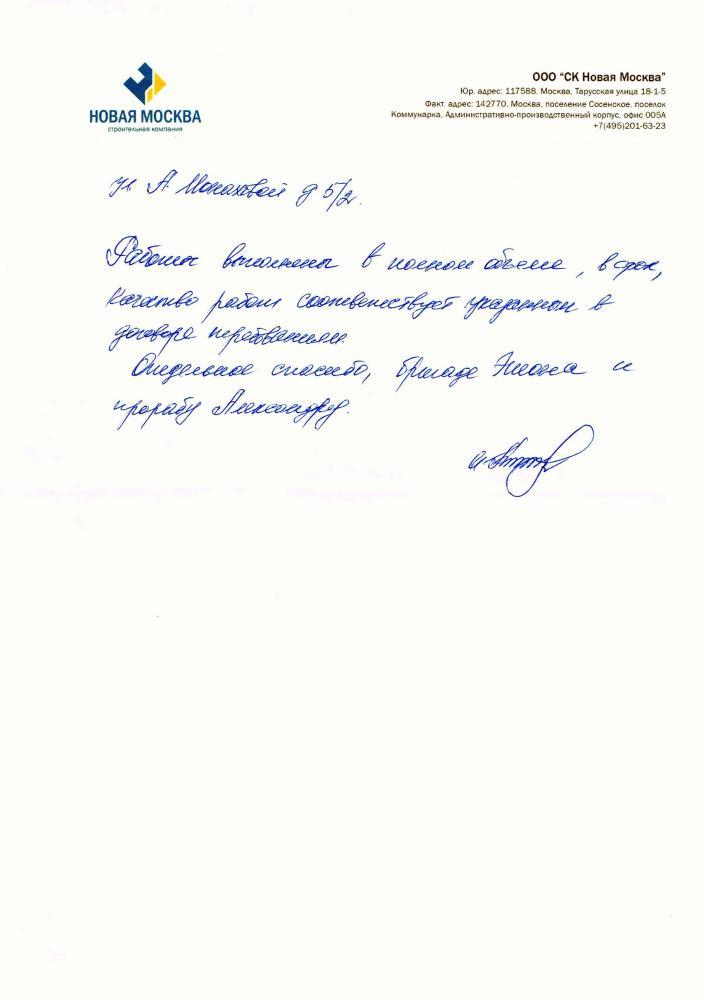 НОВАЯ МОСКВА
строительная компания
ООО "СК Новая Москва"
Юр. адрес: 117588, Москва, Тарусская улица 18-1-5
Факт. адрес: 142770, Москва, поселение Сосенское, поселок
Коммунарка, Административно-производственный корпус, офис 005А
+7(495)201-63-23
ул. А. Монаховой д 5/2.
Работы выполнены в полном объеме, в срок,
Качество работ соответствует указанным в
договоре требованиям.
Отдельное спасибо, бригаде и
прорабу Александру.